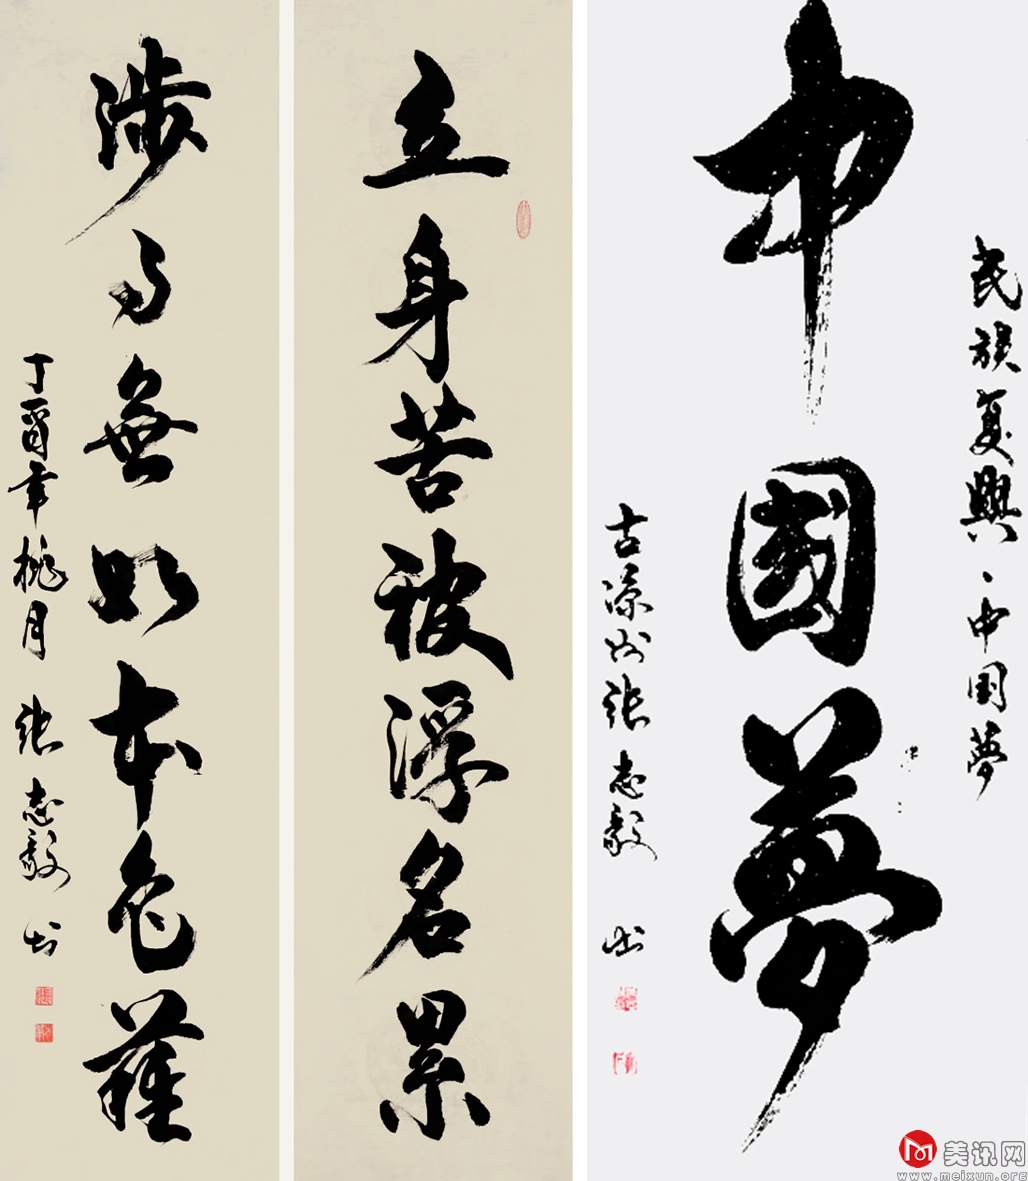 民族复興、中国夢
中國夢
古凉州張志毅书
立身苦被浮名累
涉世無如本色難
丁酉年桃月 張志毅书
美讯网
www.meixun.org